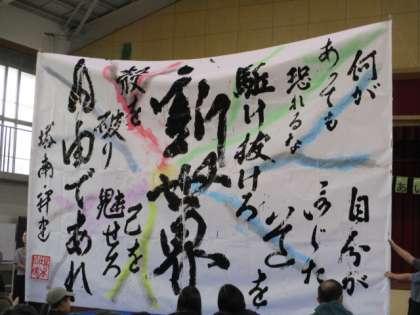 何が
あっても
恐れるな
自分が
信じた
道を
駈け抜けろ
新世界
殻を
破り
己を
魅せろ
自由であれ
塔南